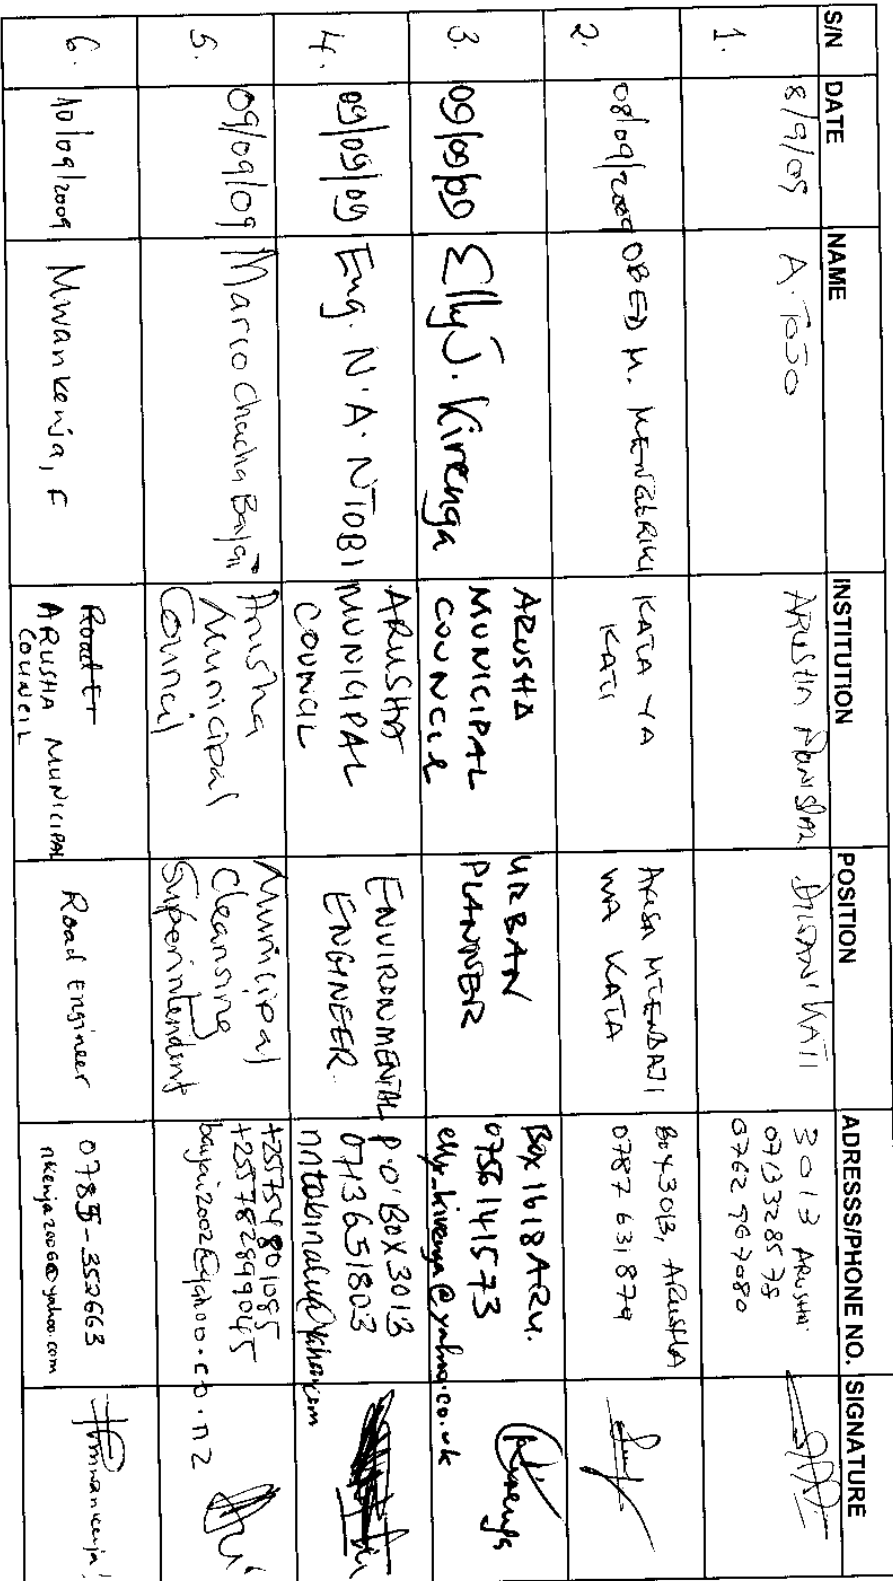 S/N DATE NAME INSTITUTION POSITION ADRESSS/PHONE NO. SIGNATURE
1. 8/9/09 A. TOJO KATI 3013 ARUSHA
0713328578
0762 967080
2. 08/09/2009 OBED M. KATA YA KATI WA KATA Box 3013, ARUSHA
0787 631879
3. 09/09/09 Elly J. Kirenga ARUSHA MUNICIPAL COUNCIL URBAN PLANNER Box 1618 ARU.
0756 141573
elly_kirenga@yahoo.co.uk
Kirenga
4. 09/09/09 Eng. N.A. NTOBI ARUSHA MUNICIPAL COUNCIL ENVIRONMENTAL ENGINEER P.O. BOX 3013
0713651803
5. 09/09/09 Marco Chacha Arusha Municipal Council Municipal Cleansing Superintendent +255754801085
+255782899045
6. 10/09/2009 Mwankenja, F ARUSHA MUNICIPAL COUNCIL Road Engineer 0785-352663
nkenja2006@yahoo.com